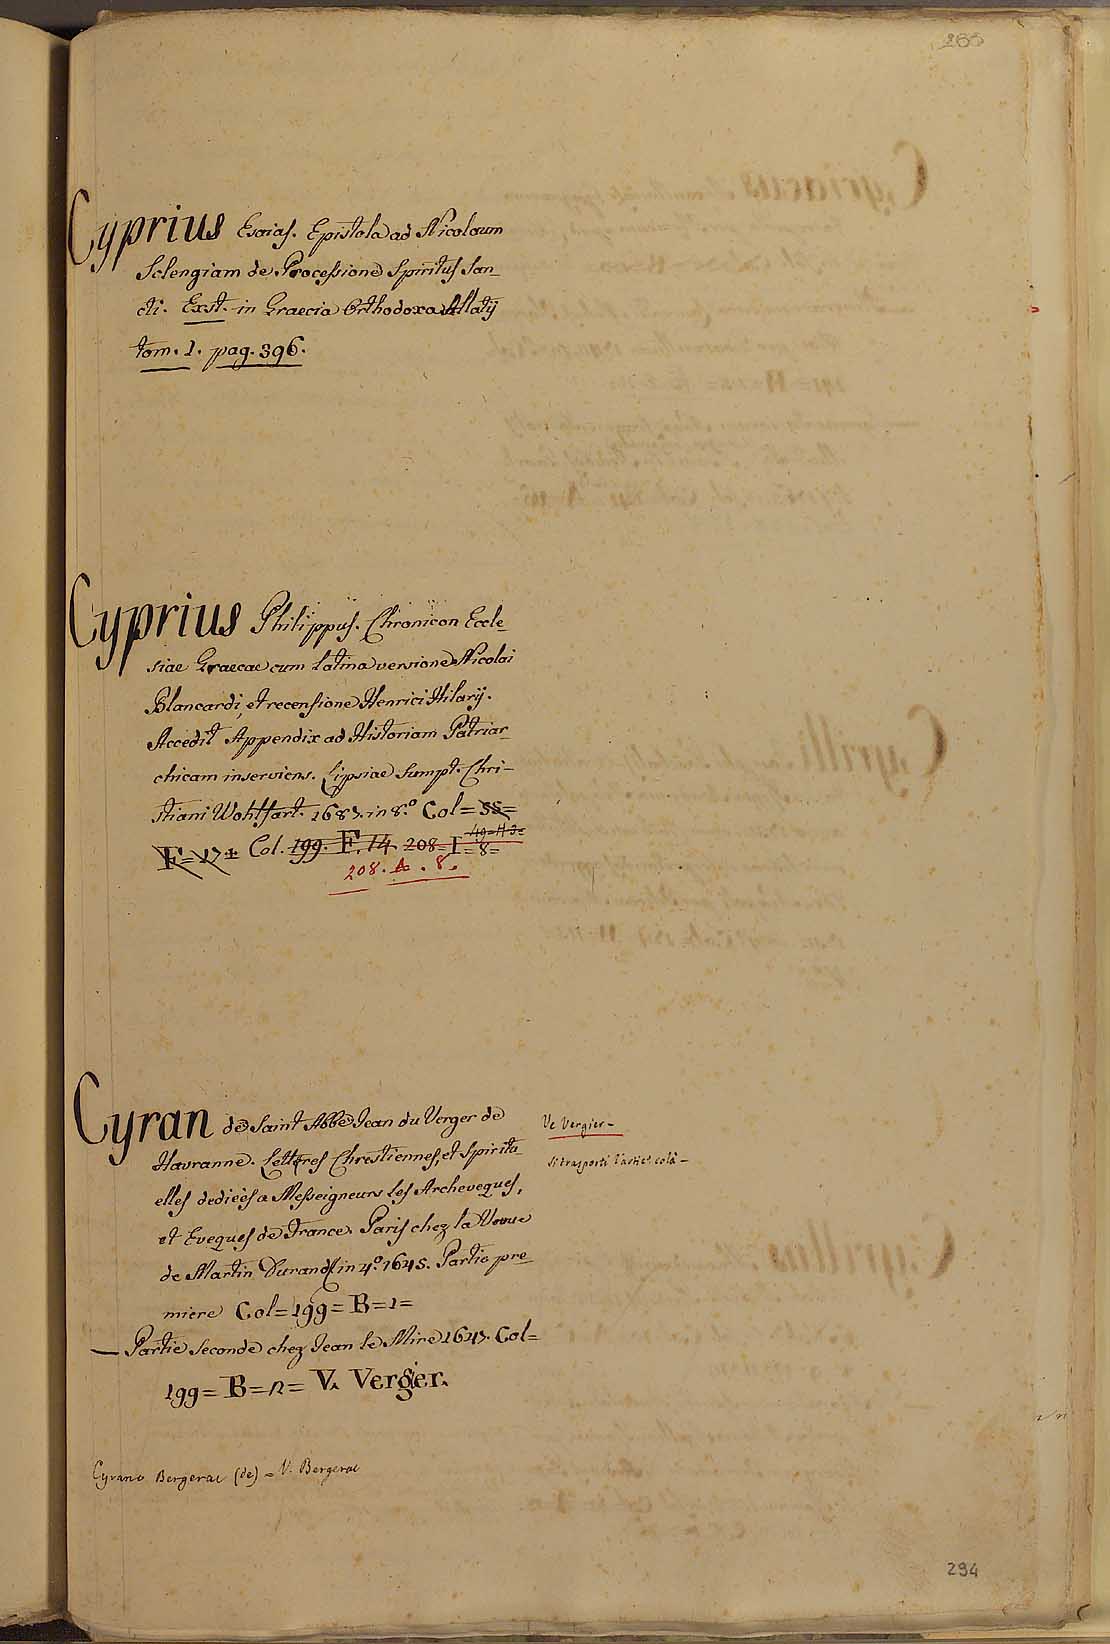 Cyprius Esaias. Epistola ad Nicolaum
Sclengiam de Processione Spiritus San-
cti. Exst. in Graecia Orthodoxa Allatij
tom. 1. pag. 396.
Cyprius Philippus. Chronicon Eccle-
siae Graecae cum latina versione Nicolai
Blancardi, et recensione Henrici Hilarij.
Accedit Appendix ad Historiam Patriar-
chicam inserviens. Lipsiae Sumpt. Chri-
stiani Wohlfart. 1687. in 8.º Col = 55 =
49=H3=
F = 17 + Col. 199. F. 14 208=I=8=
208. A. 8.
Cyran de Saint Abbé Jean du Verger de
Havranne. Lettres Chrestiennes, et Spiritu-
elles dediées a Messeigneurs les Archeveques,
et Eveques de France. Paris chez la Veuve
de Martin Durand in 4.º 1645. Partie pre-
miere Col = 199 = B = 1 =
— Partie Seconde chez Jean le Mire 1647. Col =
199 = B = 2 = V. Vergier.
Ve Vergier -
si trasporti l'artic.º colà -
Cyrano Bergerac (de) = V. Bergerac
294